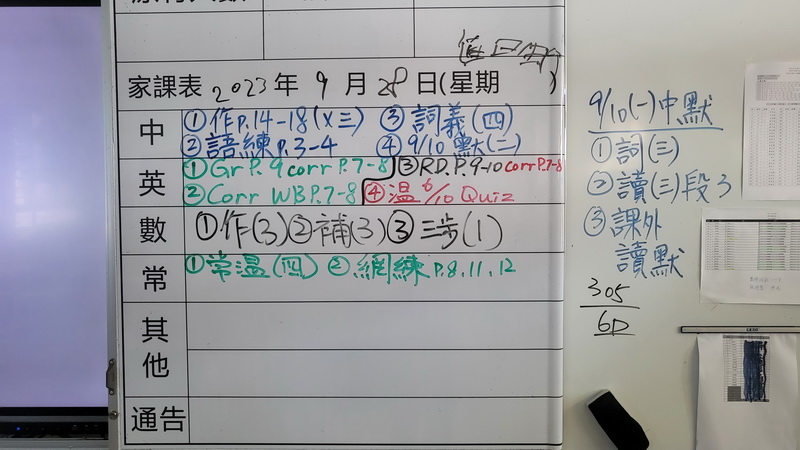 家課表 2023年 9月28日(星期 )
中
①作P.14-18(X三) ③詞義(四)
②語練P.3-4 ④9/10 默(二)
英
①Gr P.9 corr P.7-8 ③RD.P.9-10 corr P.7-8
②Corr WB P.7-8 ④溫6/10 Quiz
數
①作(3)②補(3)③三步(1)
常
①常溫(四) ②網練 P.8,11,12
其他
通告
9/10(一)中默
①詞(三)
②讀(三)段3
③課外
讀默
305
6D